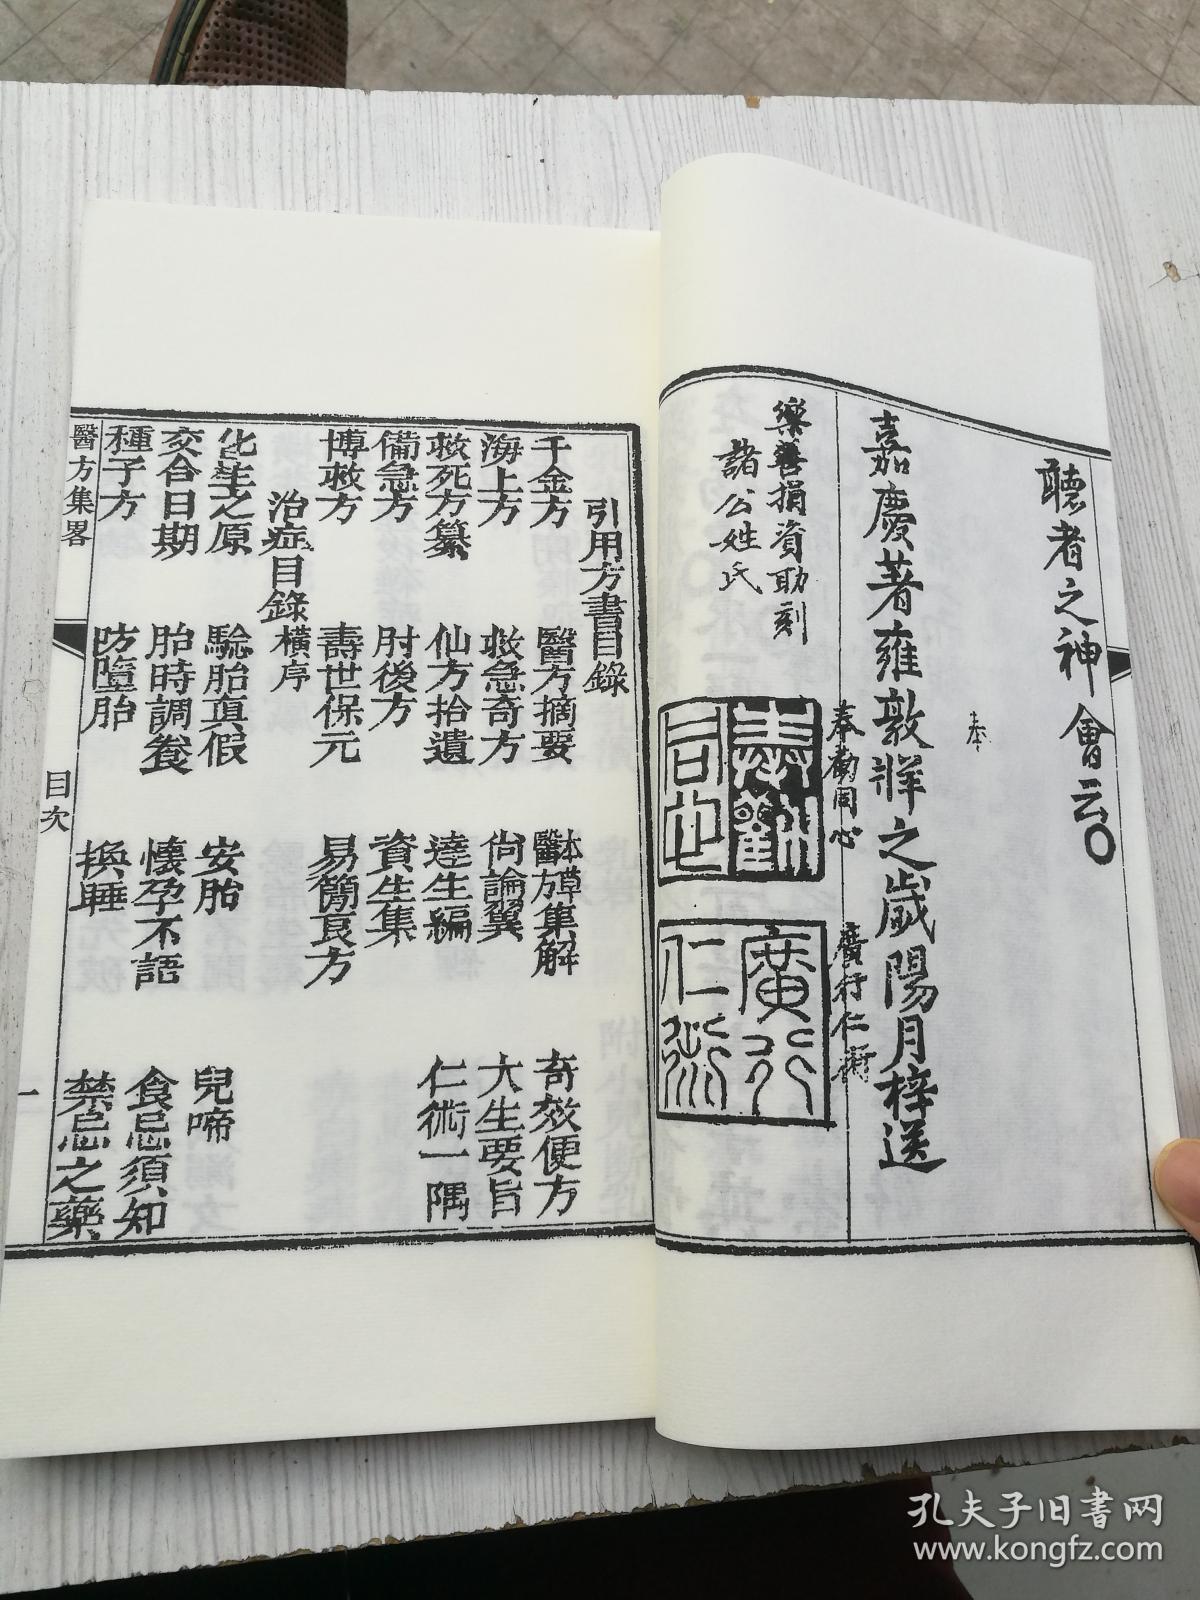 聽者之神會云〇
嘉慶著雍敦牂之歲陽月梓送
奉勸同心 廣行仁術
樂善捐資助刻
諸公姓氏
奉勸
同心
廣行
仁術
引用方書目錄
千金方 醫方摘要 本草醫方集解 奇效便方
海上方 救急奇方 尚論翼 大生要旨
救死方纂 仙方拾遺 達生編 仁術一隅
備急方 肘後方 資生集
博救方 壽世保元 易簡良方
治症目錄 橫序
化生之原 驗胎真假 安胎 兒啼
交合日期 胎時調養 懷孕不語 食忌須知
種子方 防墮胎 換睡 禁忌之藥
醫方集畧 目次 一
孔夫子旧书网
www.kongfz.com